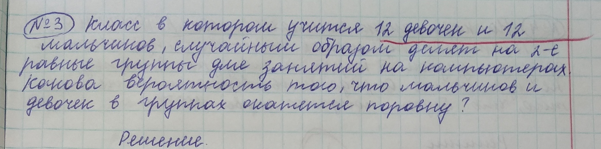 №3 Класс в котором учится 12 девочек и 12
мальчиков, случайным образом делят на 2-е
равные группы для занятий на компьютерах.
Какова вероятность того, что мальчиков и
девочек в группах окажется поровну?
Решение.